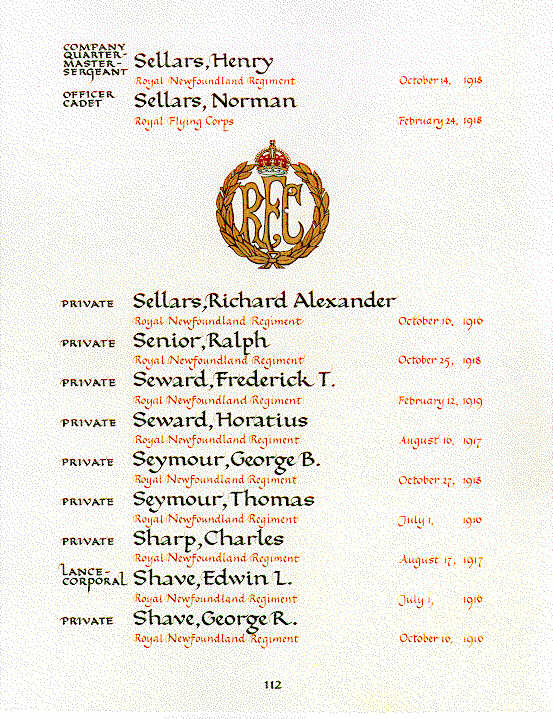 COMPANY
QUARTER-
MASTER-
SERGEANT
Sellars, Henry
Royal Newfoundland Regiment October 14, 1918
OFFICER
CADET
Sellars, Norman
Royal Flying Corps February 24, 1918
RFC
PRIVATE Sellars, Richard Alexander
Royal Newfoundland Regiment October 10, 1916
PRIVATE Senior, Ralph
Royal Newfoundland Regiment October 25, 1918
PRIVATE Seward, Frederick T.
Royal Newfoundland Regiment February 12, 1919
PRIVATE Seward, Horatius
Royal Newfoundland Regiment August 16, 1917
PRIVATE Seymour, George B.
Royal Newfoundland Regiment October 27, 1918
PRIVATE Seymour, Thomas
Royal Newfoundland Regiment July 1, 1916
PRIVATE Sharp, Charles
Royal Newfoundland Regiment August 17, 1917
LANCE-
CORPORAL Shave, Edwin L.
Royal Newfoundland Regiment July 1, 1916
PRIVATE Shave, George R.
Royal Newfoundland Regiment October 10, 1916
112